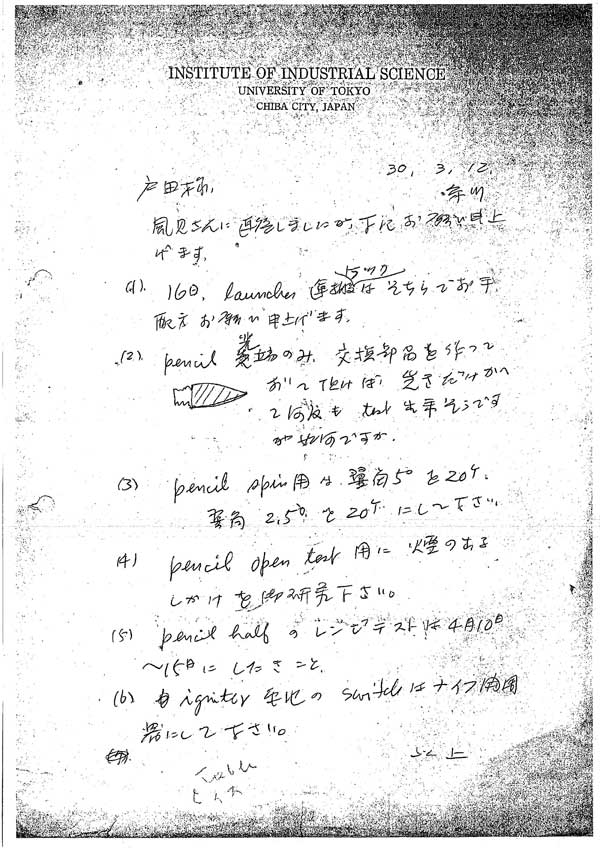 INSTITUTE OF INDUSTRIAL SCIENCE
UNIVERSITY OF TOKYO
CHIBA CITY, JAPAN
30. 3. 12.
戸田様、
糸川
風見さんに連絡しましたが、下記お願い申上
げます。
(1). 16日, launcher 運搬はそちらでお手
トラック
配方お願い申上げます。
(2). pencil 尖端のみ、交換部品を作って
おいて頂けば、先きだけかへ
て何度も test 出来そうです
が如何ですか.
(3) pencil spin用は翼角5°を20ケ.
翼角 2.5° を20ケ にして下さい.
(4) pencil open test 用に煙のある
しかけを御研究下さい。
(5) pencil half のレンヂテストは4月10日
〜15日にしたきこと.
(6) igniter の switch はナイフ
器にして下さい。
以上